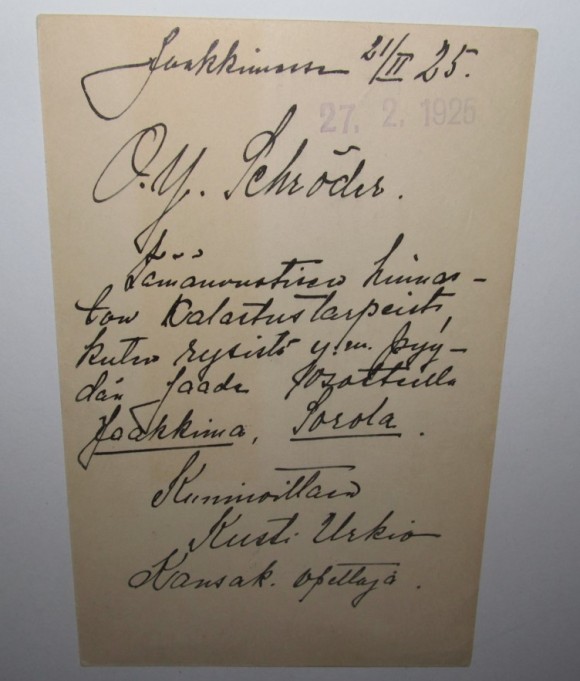 Jaakkimassa 21/II 25.
27. 2. 1925
O.Y. Schröder.
Tämänvuotisen hinnas-
ton Kalastustarpeista,
kuten rysistä y.m. pyy-
dän saada osotteella
Jaakkima, Sorola.
Kunnioittaen
Kusti Urkio
Kansak. opettaja.